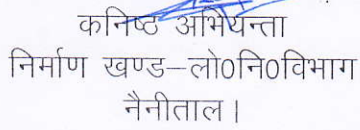 कनिष्ठ अभियन्ता
निर्माण खण्ड–लो0नि0विभाग
नैनीताल।